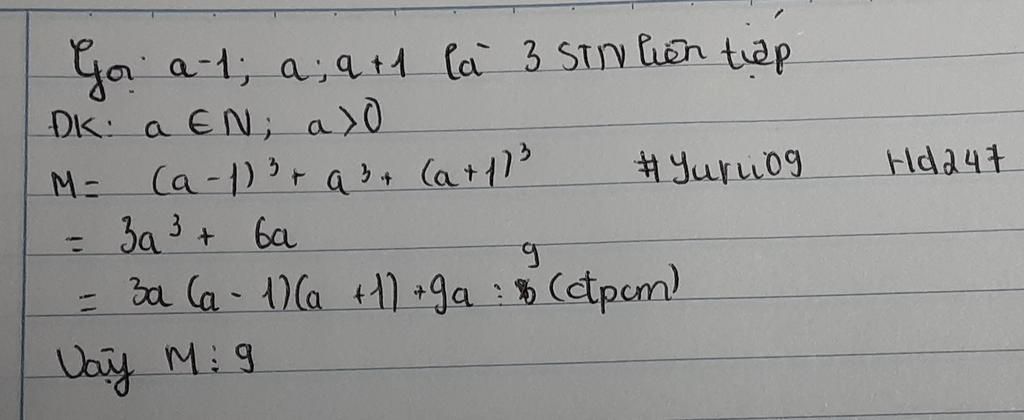 Gọi a-1; a; a+1 là 3 STN liên tiếp
ĐK: a ∈ N; a>0
M= (a-1)³+ a³+ (a+1)³ #Yurii09 Hd247
= 3a³ + 6a
= 3a (a - 1)(a +1) +9a ⋮ 9 (đpcm)
Vậy M ⋮ 9